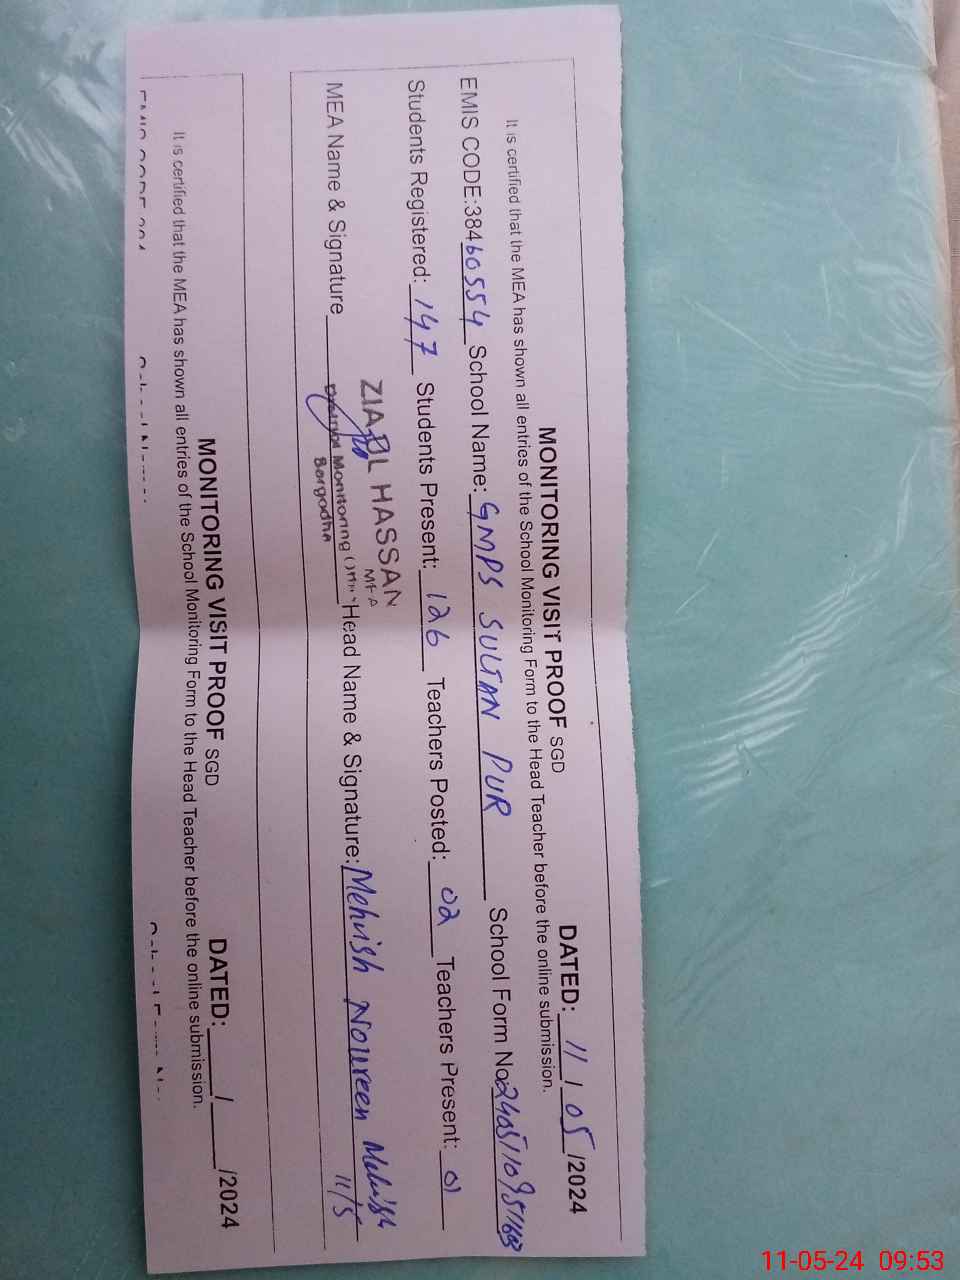 MONITORING VISIT PROOF SGD DATED: 11 / 05 /2024
It is certified that the MEA has shown all entries of the School Monitoring Form to the Head Teacher before the online submission.
EMIS CODE:38460554 School Name: GMPS SULTAN PUR School Form No:
Students Registered: 147 Students Present: 126 Teachers Posted: 02 Teachers Present: 01
ZIA UL HASSAN
MEA
MEA Name & Signature Monitoring Head Name & Signature: Mehvish Noureen Mehvish
Sargodha 11/5
MONITORING VISIT PROOF SGD DATED: / /2024
It is certified that the MEA has shown all entries of the School Monitoring Form to the Head Teacher before the online submission.
11-05-24 09:53